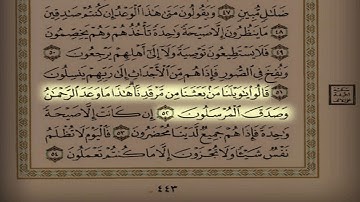 ضَلَٰلٖ مُّبِينٖ ٤٧ وَيَقُولُونَ مَتَىٰ هَٰذَا ٱلۡوَعۡدُ إِن كُنتُمۡ صَٰدِقِينَ
٤٨ مَا يَنظُرُونَ إِلَّا صَيۡحَةٗ وَٰحِدَةٗ تَأۡخُذُهُمۡ وَهُمۡ يَخِصِّمُونَ
٤٩ فَلَا يَسۡتَطِيعُونَ تَوۡصِيَةٗ وَلَآ إِلَىٰٓ أَهۡلِهِمۡ يَرۡجِعُونَ ٥٠
وَنُفِخَ فِي ٱلصُّورِ فَإِذَا هُم مِّنَ ٱلۡأَجۡدَاثِ إِلَىٰ رَبِّهِمۡ يَنسِلُونَ
٥١ قَالُواْ يَٰوَيۡلَنَا مَنۢ بَعَثَنَا مِن مَّرۡقَدِنَاۗ هَٰذَا مَا وَعَدَ ٱلرَّحۡمَٰنُ
وَصَدَقَ ٱلۡمُرۡسَلُونَ ٥٢ إِن كَانَتۡ إِلَّا صَيۡحَةٗ
وَٰحِدَةٗ فَإِذَا هُمۡ جَمِيعٞ لَّدَيۡنَا مُحۡضَرُونَ ٥٣ فَٱلۡيَوۡمَ لَا تُظۡلَمُ
نَفۡسٞ شَيۡـٔٗا وَلَا تُجۡزَوۡنَ إِلَّا مَا كُنتُمۡ تَعۡمَلُونَ ٥٤
٤٤٣